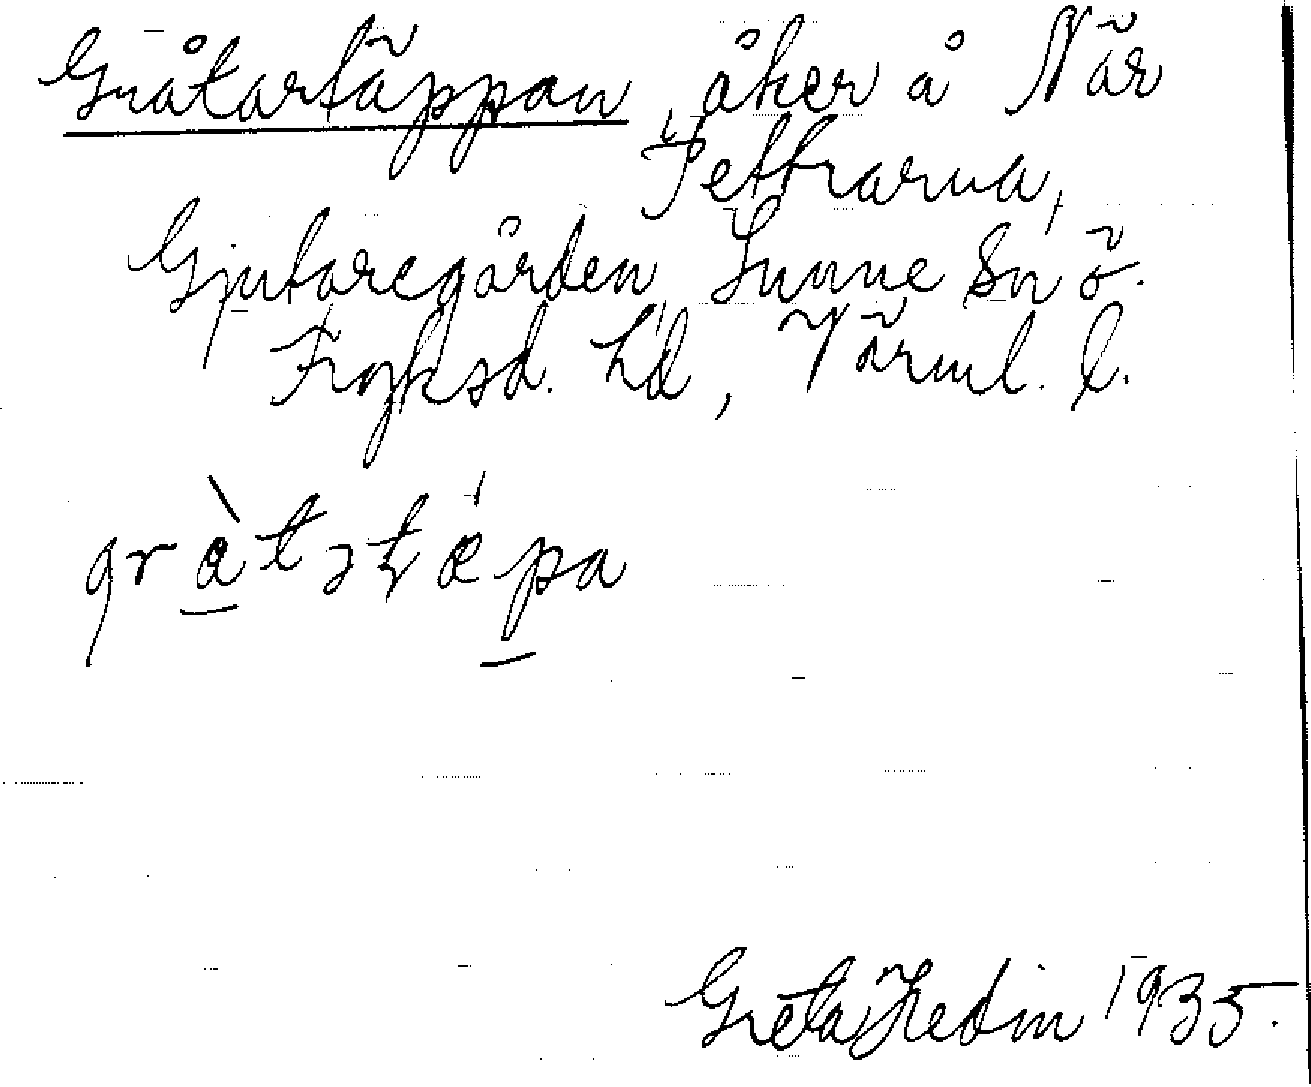 Gråtartäppan, åker å När
Pettrarna,
Gjutaregården Sunne Sn ö.
Fryksd. hd, Värml. l.
gràtətǽpa
Greta Hedin 1935.